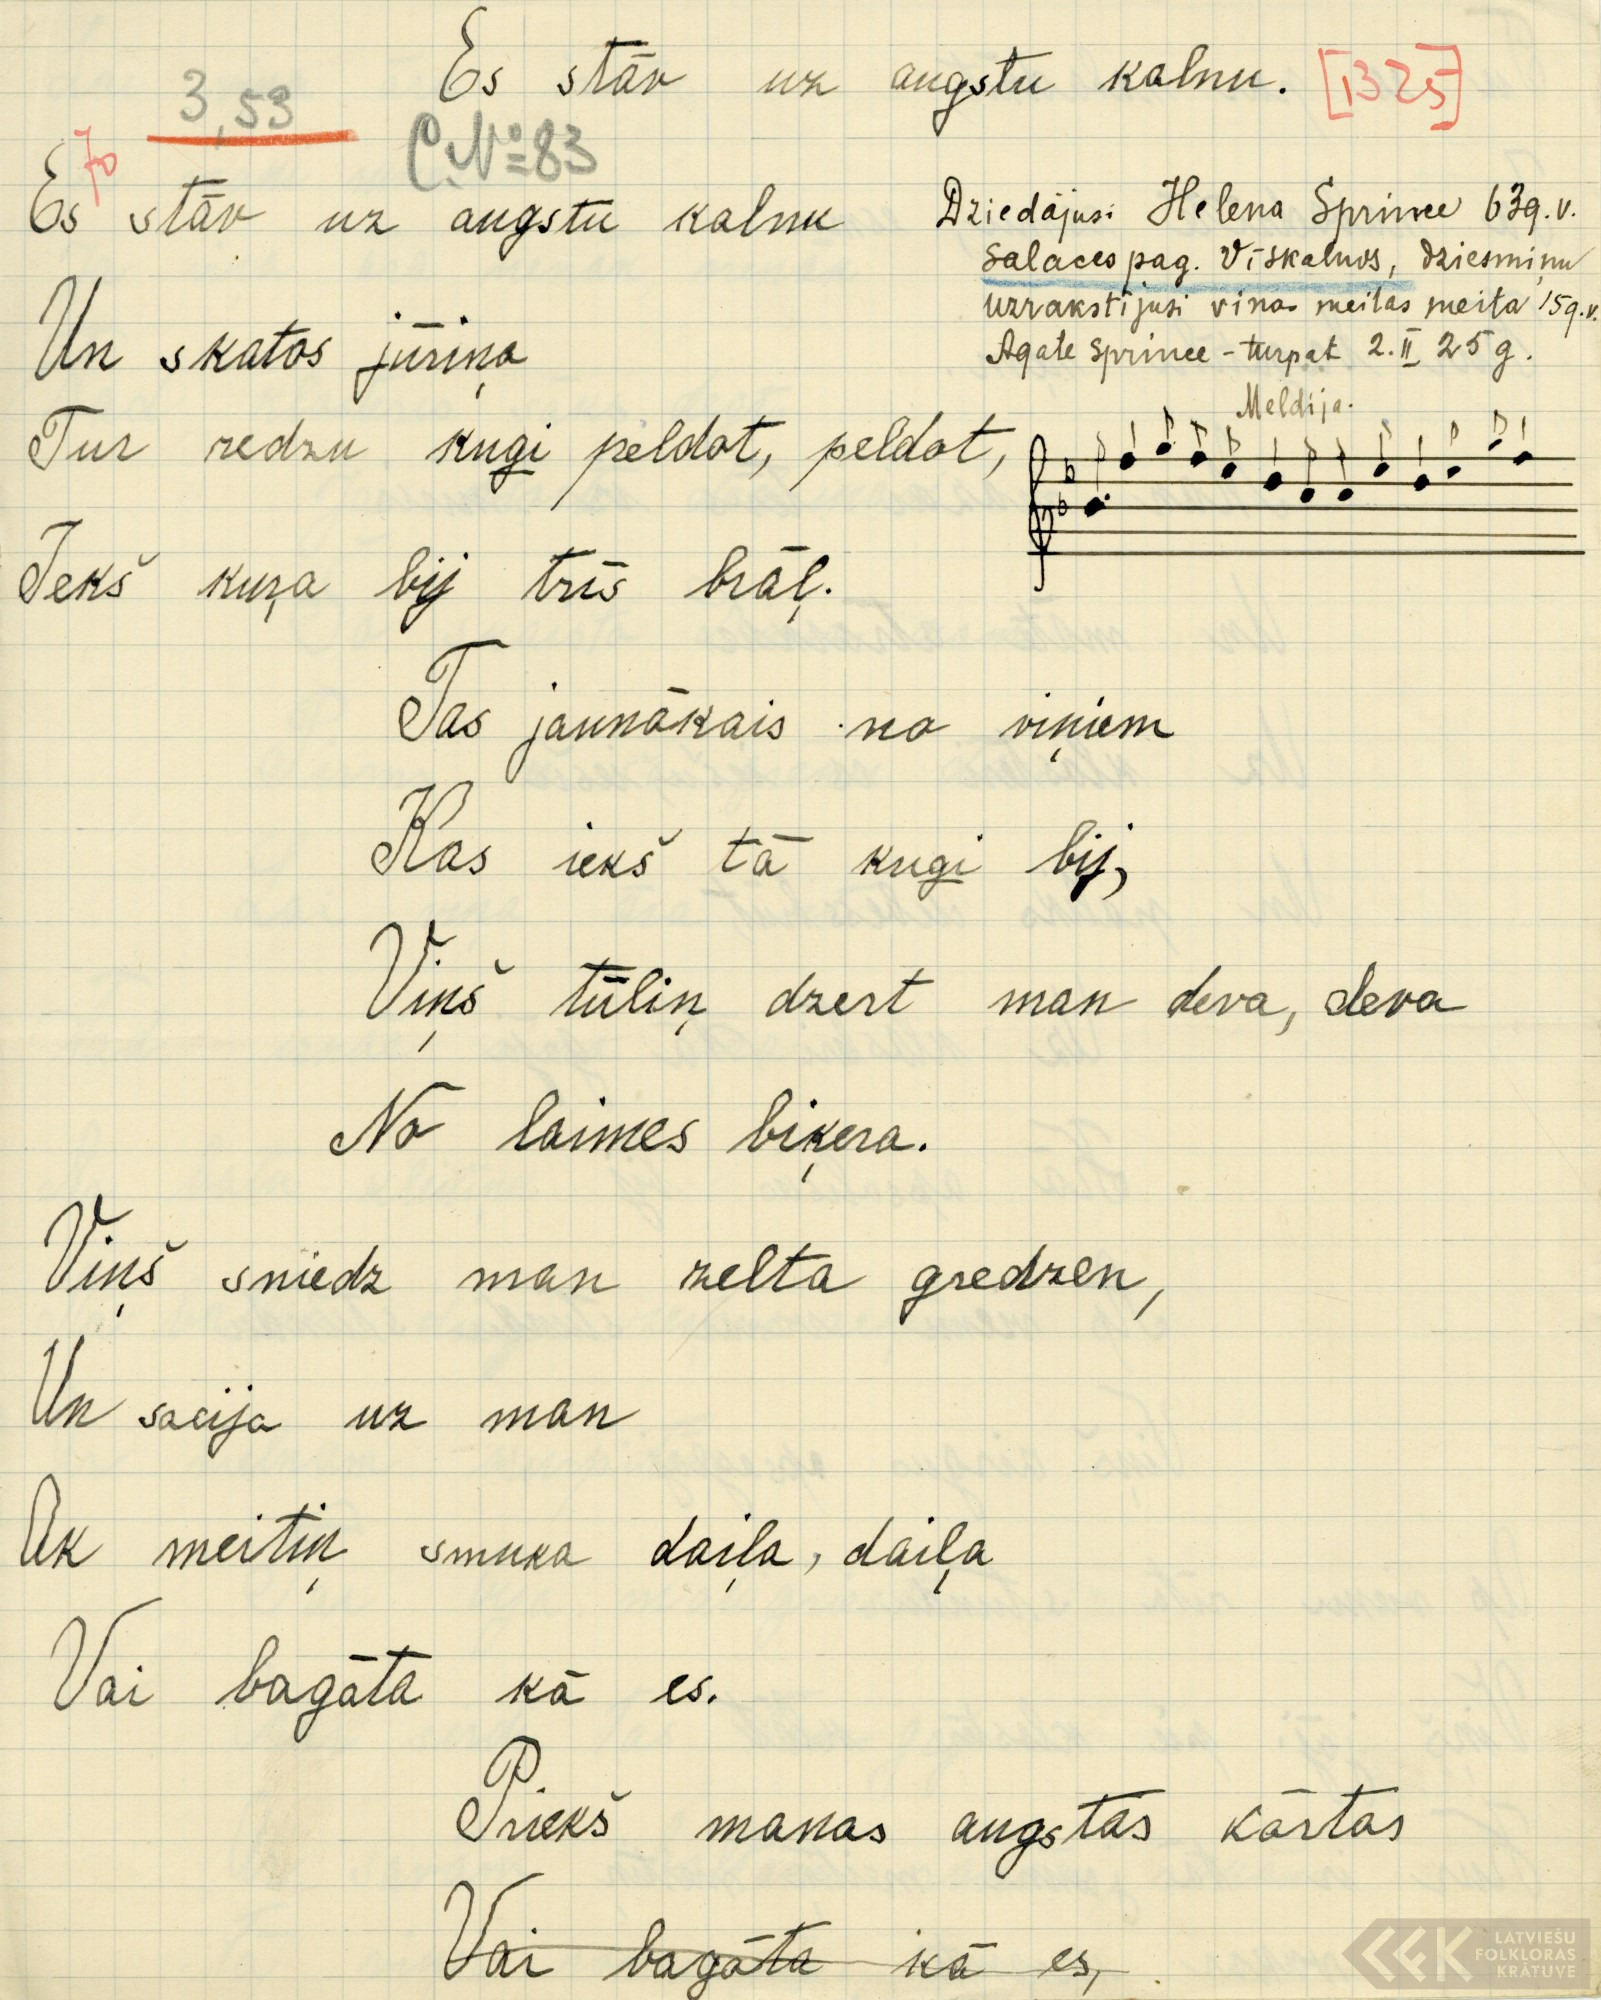 Es stāv uz augstu kalnu. [1325]
3,53
C. № 83
70
Es stāv uz augstu kalnu
Un skatos jūriņa
Tur redzu kugi peldot, peldot,
Iekš kuŗa bij trīs brāļ.
Dziedājusi Helena Sprince 63g.v.
Salaces pag. Vīskalnos, dziesmiņu
uzrakstījusi viņas meitas meita 15g.v.
Agate Sprince - turpat 2. II 25 g.
Meldija.
Tas jaunākais no viņiem
Kas iekš tā kugi bij,
Viņš tūliņ dzert man deva, deva
No laimes biķera.
Viņš sniedz man zelta gredzen,
Un sacija uz man
Ak meitiņ smuka daiļa, daiļa
Vai bagāta kā es.
Priekš manas augstas kārtas
Vai bagāta kā es,
LATVIEŠU
FOLKLORAS
KRĀTUVE